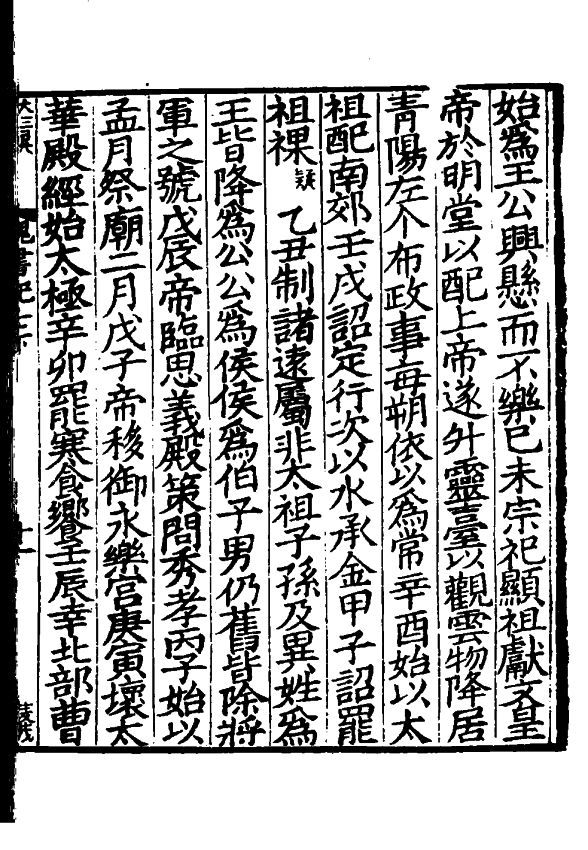 始爲王公興懸而不樂己未宗祀顯祖獻文皇
帝於明堂以配上帝遂升靈臺以觀雲物降居
青陽左个布政事每朔依以爲常辛酉始以太
祖配南郊壬戌詔定行次以水承金甲子詔罷
祖裸疑乙丑制諸遠屬非太祖子孫及異姓爲
王皆降爲公公爲侯侯爲伯子男仍舊皆除將
軍之號戊辰帝臨思義殿策問秀孝丙子始以
孟月祭廟二月戊子帝移御永樂宮庚寅壞太
華殿經始太極辛卯罷寒食饗壬辰幸北部曹
魏書紀七下
十一